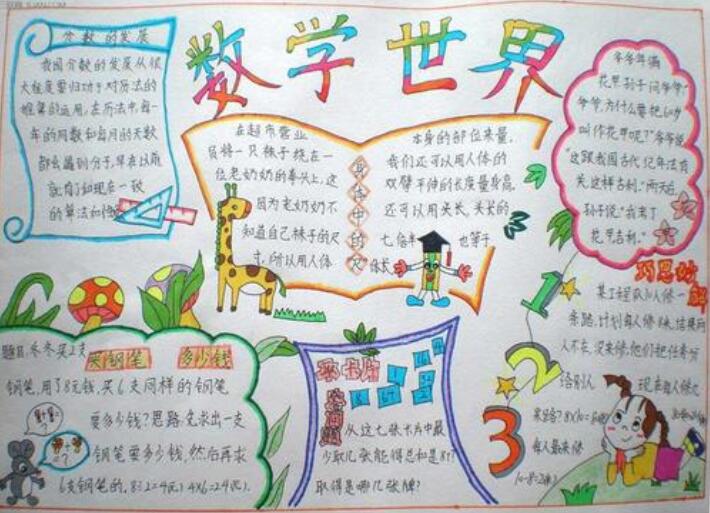 数学世界
分数的发展
我国分数的发展从很
大程度要归功于对历法的
推算的运用,在历法中,每一
年的周数和每月的天数
都会遇到分子,早在以前
就有了和现在一致
的算法如
身体中的尺
在超市营业
员将一只袜子绕在一
位老奶奶的拳头上,这
因为老奶奶不
知道自己袜子的尺
寸,所以用人体
本身的部位来量,
我们还可以用人体的
双臂平伸的长度量身高,
还可以用头长,头长的
七倍半 也等于
体长
爷爷年满
花甲,孙子问爷爷:“
爷爷,为什么要把60岁
叫作花甲呢?”爷爷说:
“这跟我国古代纪年法有
关,这样吉利。”两天后,
孙子说:“我考了
花甲吉利。”
巧思妙解
某工程队10人修一
条路,计划每人修8米,结果两
人不在,没来修,他们把任务分
给别人 现在每人修几
米路? 8×10=80(米)
每人最来修
10-8=2(米)
1
2
3
买钢笔 多少钱
题目:冬冬买2支
钢笔,用了8元钱,买6支同样的钢笔
要多少钱?思路:先求出一支
钢笔要多少钱,然后再求
6支钢笔的,8÷2=4(元) 4×6=24(元).
从这七张卡片中最
少取几张能得总和是8?
取得是哪几张牌?